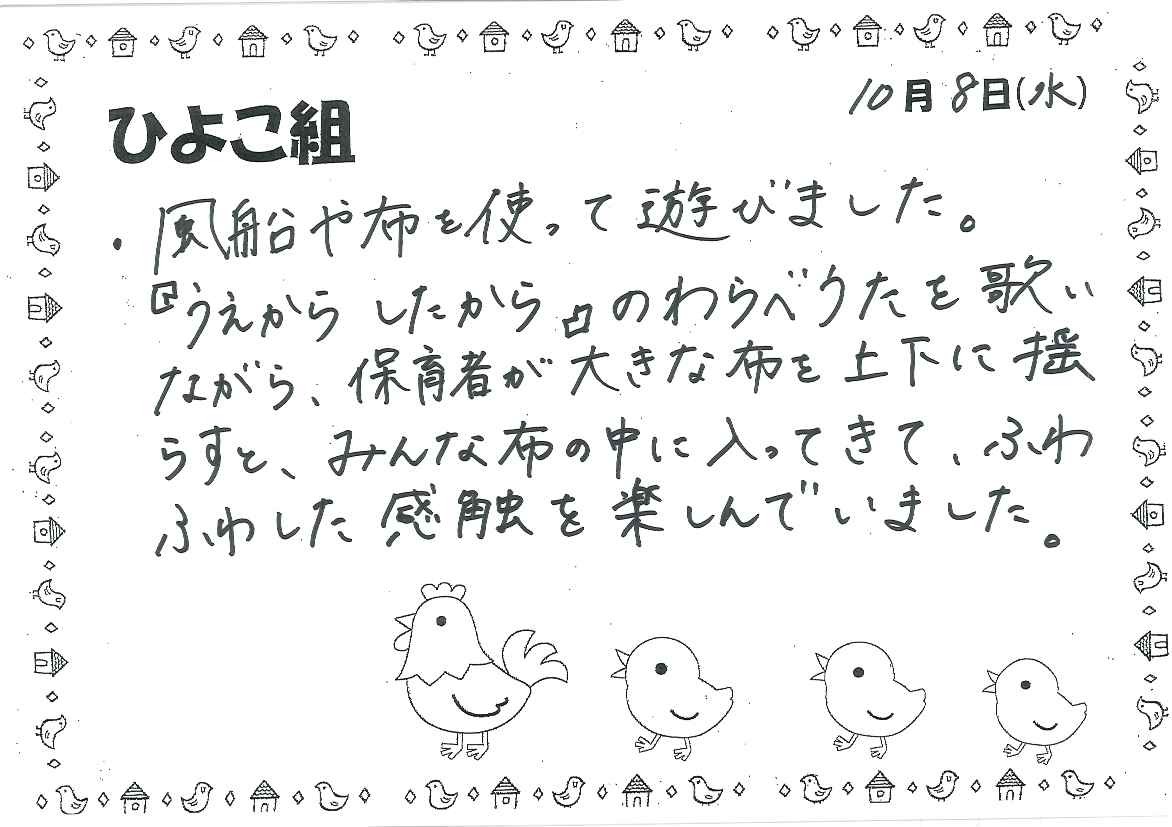 10月8日(水)
ひよこ組
・風船や布を使って遊びました。
『うえから したから』のわらべうたを歌い
ながら、保育者が大きな布を上下に揺
らすと、みんな布の中に入ってきて、ふわ
ふわした感触を楽しんでいました。